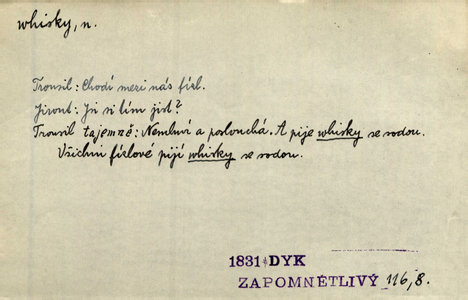 whisky, n.
Trousil: Chodí mezi nás fízl.
Jirout: Jsi si tím jist?
Trousil tajemně: Nemluví a poslouchá. A pije whisky se sodou.
Všichni fízlové pijí whisky se sodou.
1831 DYK
ZAPOMNĚTLIVÝ 116,8.